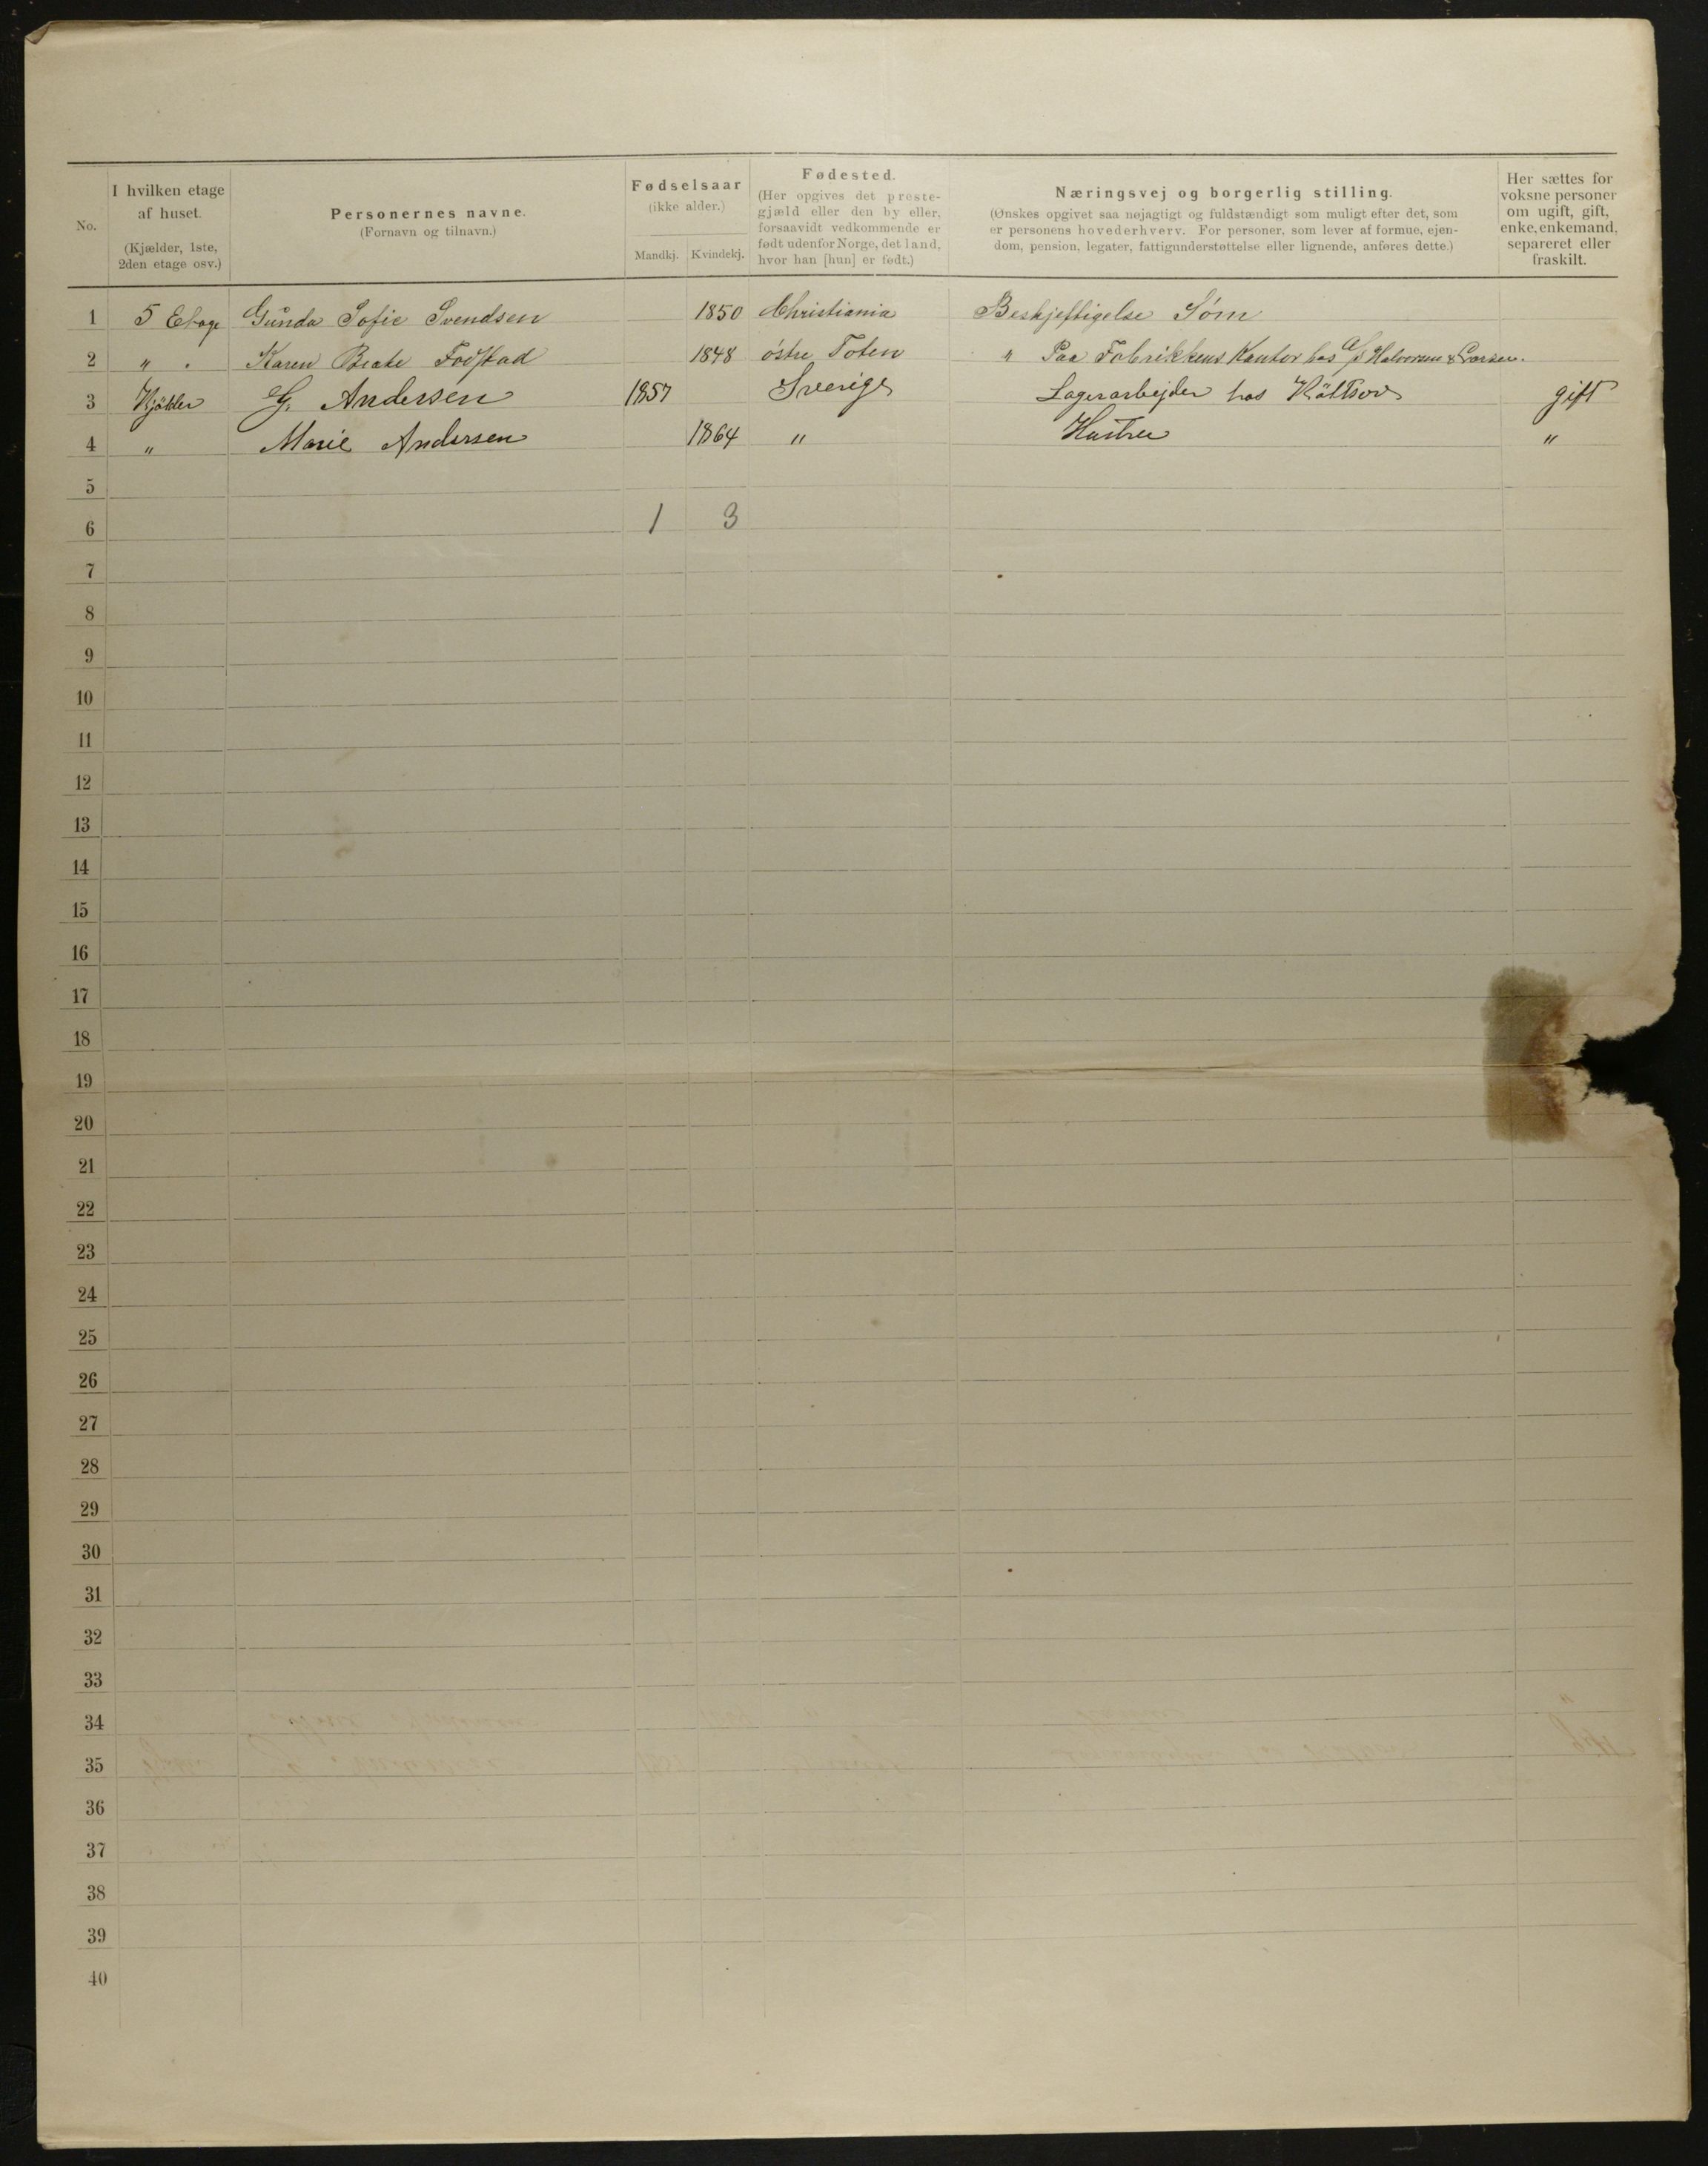 No.
I hvilken etage af huset. (Kjælder, 1ste, 2den etage osv.)
Personernes navne. (Fornavn og tilnavn.)
Fødselsaar (ikke alder.)
Mandkj. Kvindekj.
Fødested. (Her opgives det prestegjæld eller den by eller, forsaavidt vedkommende er født udenfor Norge, det land, hvor han [hun] er født.)
Næringsvej og borgerlig stilling.
(Ønskes opgivet saa nøjagtigt og fuldstændigt som muligt efter det, som
er personens hovederhverv. For personer, som lever af formue, ejen-
dom, pension, legater, fattigunderstøttelse eller lignende, anføres dette.)
Her sættes for voksne personer om ugift, gift, enke, enkemand, separeret eller fraskilt.
1 5 Etage Gunda Sofie Svendsen 1850 Christiania Beskjeftigelse Søm
2 " " Karen Beate Fodstad 1848 østre Toten " Paa Fabrikkens Kontor hos Halvorsen & Larsen.
3 Kjölder G. Andersen 1857 Sverige Lagerarbejder hos gift
4 " Marie Andersen 1864 " Hustru "
5
6 1 3
7
8
9
10
11
12
13
14
15
16
17
18
19
20
21
22
23
24
25
26
27
28
29
30
31
32
33
34
35
36
37
38
39
40